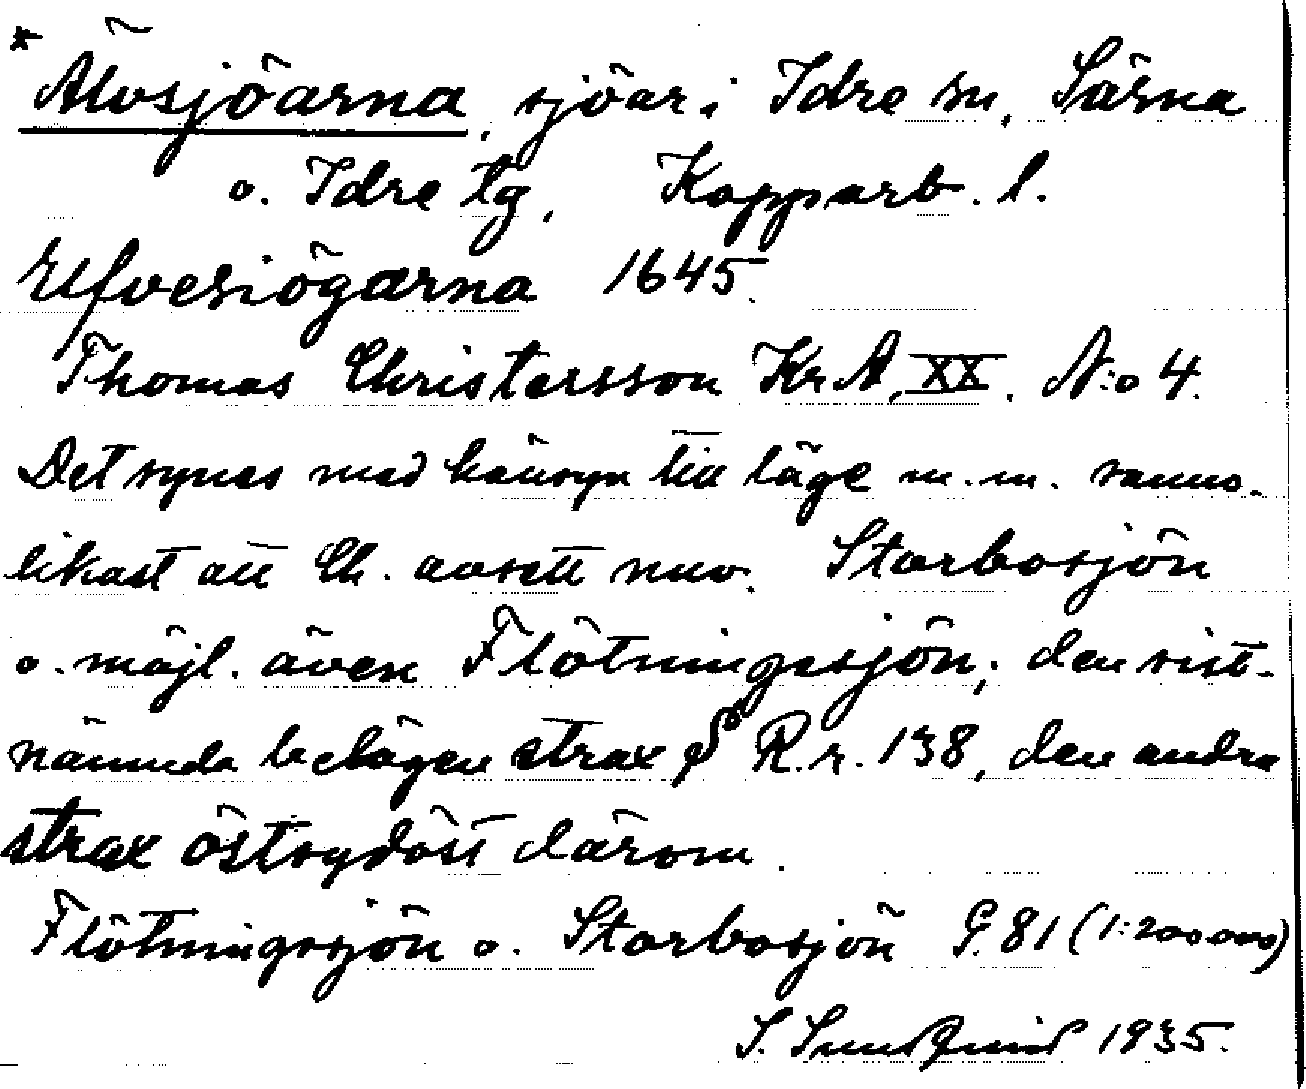 * Älvsjöarna, sjöar i Idre sn, Särna
o. Idre tg, Kopparb. l.
Elfvesiögarna 1645.
Thomas Christersson Kr A, XX. N:o 4.
Det synes med hänsyn till läge m.m. sanno-
likast att Ch. avsett nuv. Storbosjön
o. möjl. även Flötningssjön; den sist-
nämnda belägen strax S R.r. 138, den andra
strax östsydöst därom.
Flötningssjön o. Storbosjön G. 81 (1:200000)
S. Sundquist 1935.